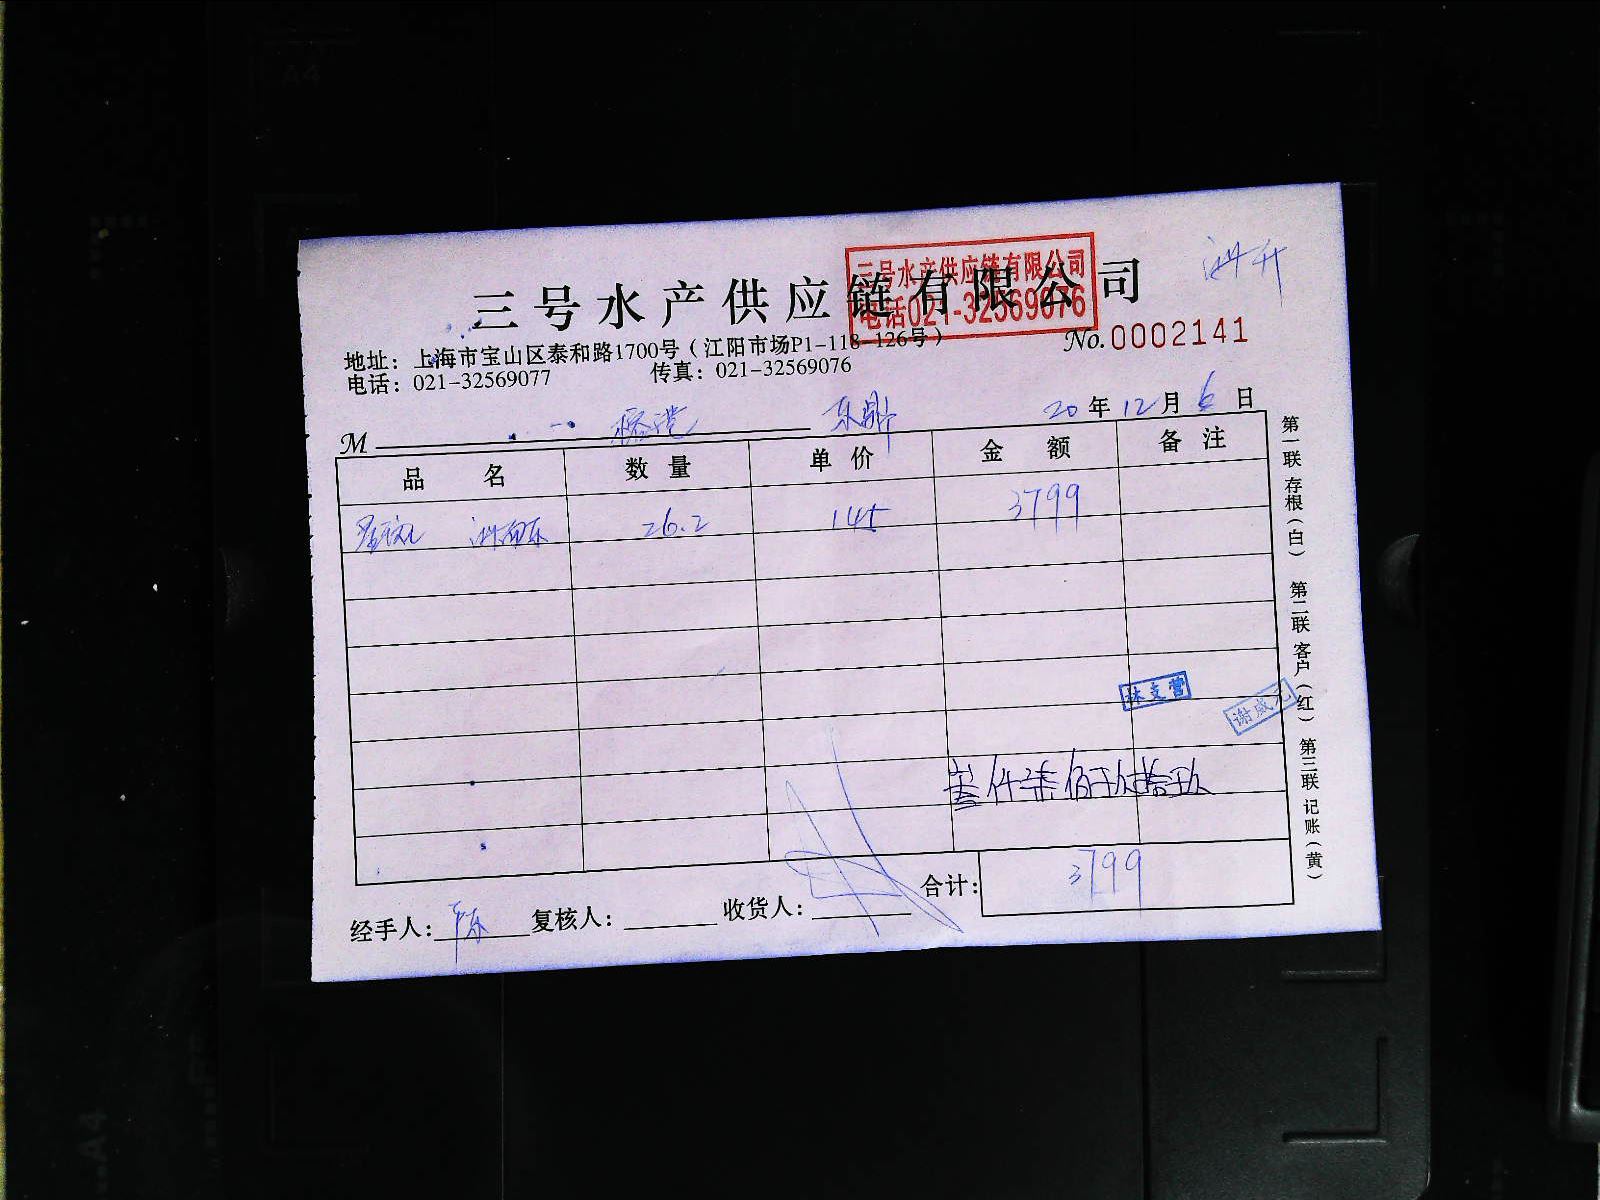 三号水产供应链有限公司
三号水产供应链有限公司
电话021-32569076
地址：上海市宝山区泰和路1700号（江阳市场P1-118-126号）
No.0002141
电话：021-32569077 传真：021-32569076
M 东鼎 20年12月6日
品 名 数 量 单 价 金 额 备 注
26.2 145 3799
林支营
谢盛元
叁仟柒佰玖拾玖
合计： 3799
经手人： 复核人： 收货人：
第一联 存根（白） 第二联 客户（红） 第三联 记账（黄）
A4
A4